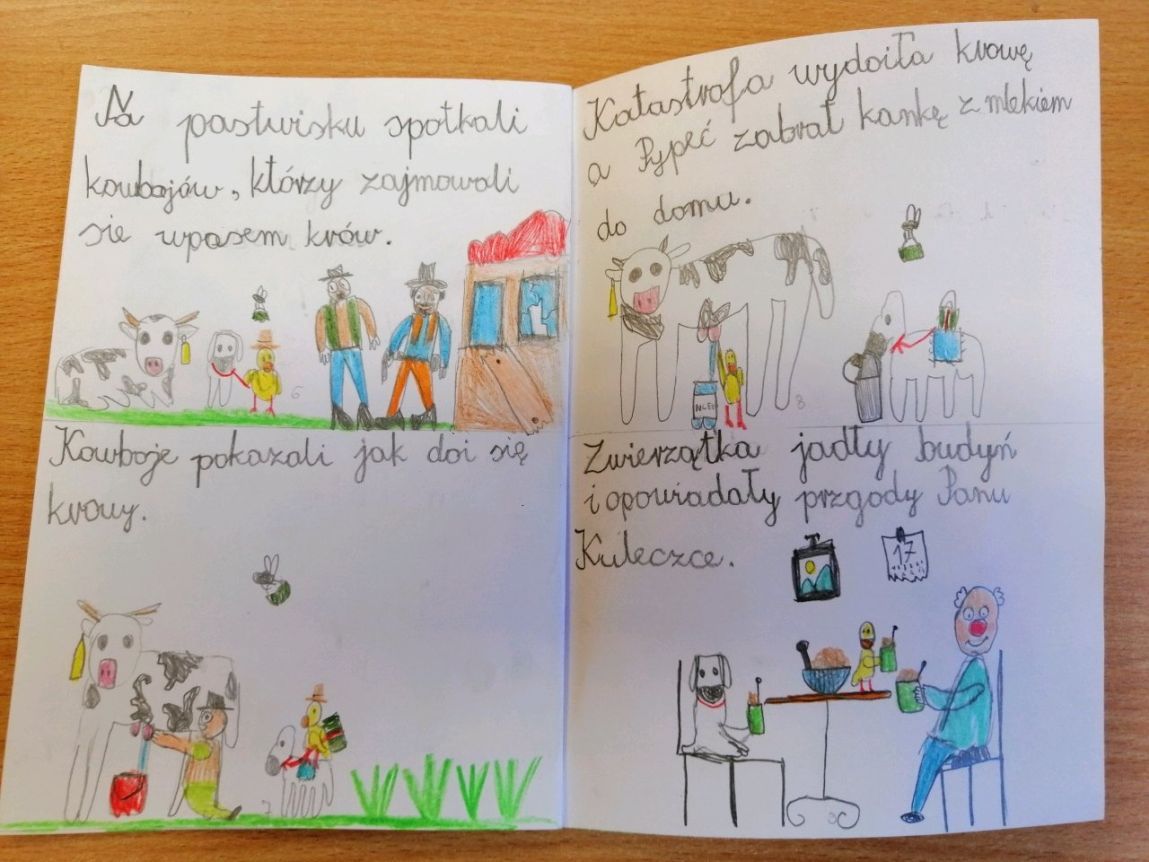 Na pastwisku spotkali
kowbojów, którzy zajmowali
sie wpasem krów.
6
Kowboje pokazali jak doi się
krowy.
7
Katastrofa wydoiła krowę
a Pypeć zabrał kankę z mlekiem
do domu.
8
Zwierzątka jadły budyń
i opowiadały przgody Panu
Kuleczce.
17